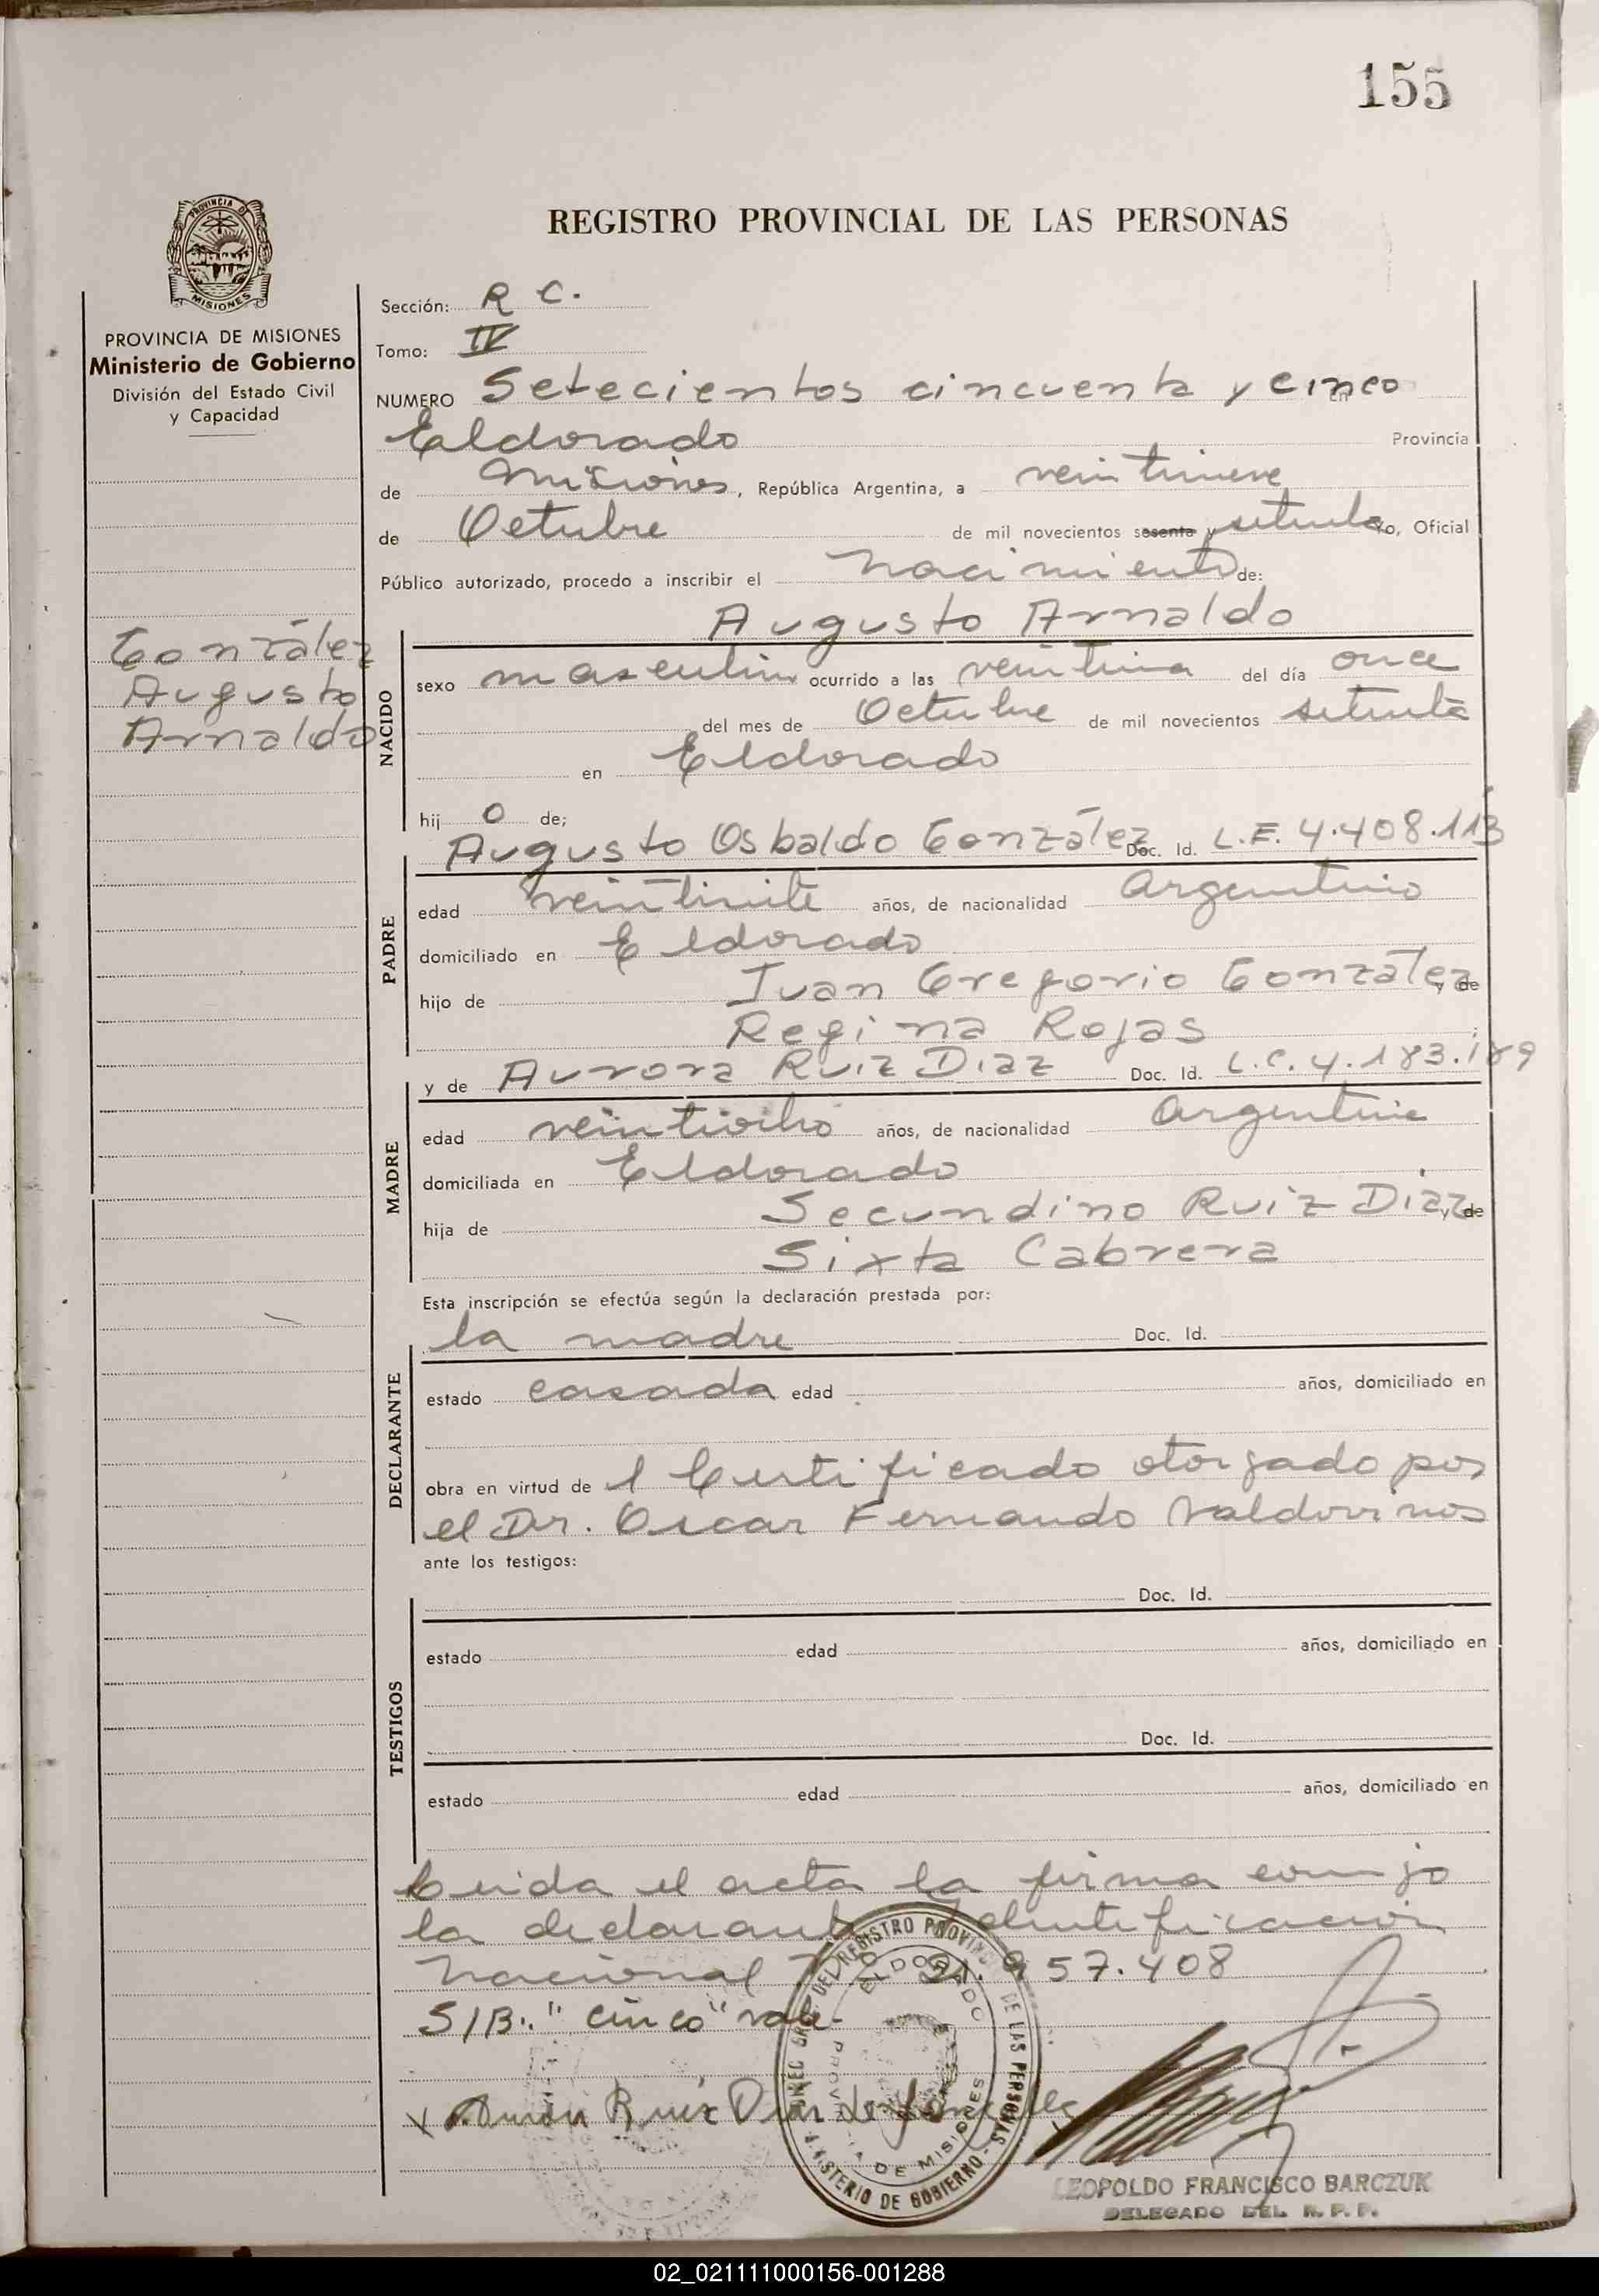 155
REGISTRO PROVINCIAL DE LAS PERSONAS
PROVINCIA DE MISIONES
Ministerio de Gobierno
División del Estado Civil
y Capacidad
Sección: R C.
Tomo: IV
NUMERO Setecientos cincuenta y cinco
Eldorado Provincia
de Misiones, República Argentina, a veintinueve
de Octubre de mil novecientos sesenta y setenta Yo, Oficial
Público autorizado, procedo a inscribir el nacimiento de:
González
Augusto
Arnaldo
NACIDO
Augusto Arnaldo
sexo masculino ocurrido a las veintiuna del día once
del mes de Octubre de mil novecientos setenta
en Eldorado
hij o de;
PADRE
Augusto Osbaldo González Doc. Id. L.E. 4.408.113
edad veintisiete años, de nacionalidad Argentino
domiciliado en Eldorado
hijo de Juan Gregorio González y de
Regina Rojas ;
MADRE
y de Aurora Ruiz Diaz Doc. Id. L.C. 4.183.189
edad veintiocho años, de nacionalidad Argentina
domiciliada en Eldorado
hija de Secundino Ruiz Diaz, y de
Sixta Cabrera
Esta inscripción se efectúa según la declaración prestada por:
DECLARANTE
la madre Doc. Id.
estado casada edad años, domiciliado en
obra en virtud de l Certificado otorgado por
el Dr. Oscar Fernando Valdovinos
ante los testigos:
TESTIGOS
Doc. Id.
estado edad años, domiciliado en
Doc. Id.
estado edad años, domiciliado en
Leida el acta la firma conmigo
la declarante Identificación
Nacional Nº 21.957.408
S/B: "cinco" vale.
x Aurora Ruiz Diaz de González
DEL REGISTRO PROVINCIAL DE LAS PERSONAS
MINISTERIO DE GOBIERNO
ELDORADO
PROVINCIA DE MISIONES
LEOPOLDO FRANCISCO BARCZUK
DELEGADO DEL R. P. P.
02_021111000156-001288